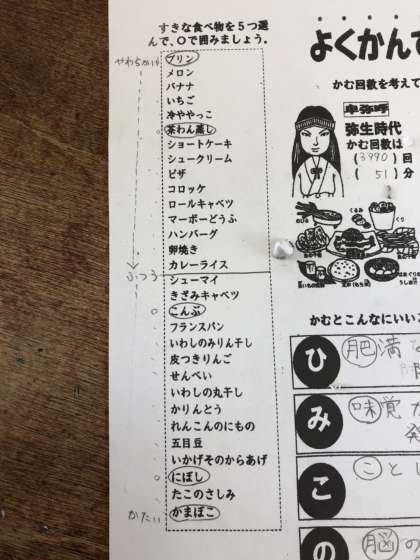 すきな食べ物を5つ選
んで、〇で囲みましょう。
やわらかい
プリン
メロン
バナナ
いちご
冷ややっこ
茶わん蒸し
ショートケーキ
シュークリーム
ピザ
コロッケ
ロールキャベツ
マーボーどうふ
ハンバーグ
卵焼き
カレーライス
ふつう
シューマイ
きざみキャベツ
こんぶ
フランスパン
いわしのみりん干し
皮つきりんご
せんべい
いわしの丸干し
かりんとう
れんこんのにもの
五目豆
いかげそのからあげ
にぼし
たこのさしみ
かたい
かまぼこ
よくかんで
かむ回数を考えて
卑弥呼
弥生時代
かむ回数は
(3990)回
(51)分
くるみ
かむとこんなにいいこ
ひ 肥満
み 味覚
こ こと
の 脳